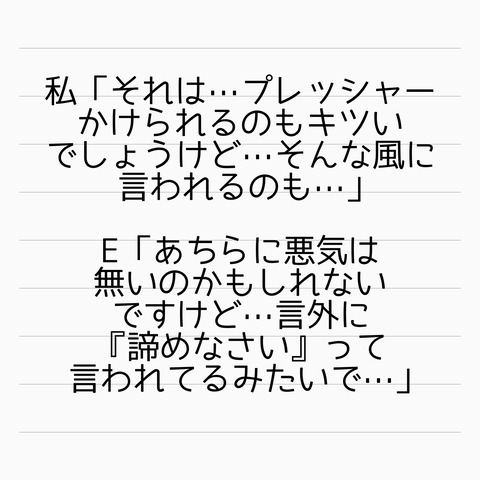 私「それは…プレッシャー
かけられるのもキツい
でしょうけど…そんな風に
言われるのも…」
E「あちらに悪気は
無いのかもしれない
ですけど…言外に
『諦めなさい』って
言われてるみたいで…」